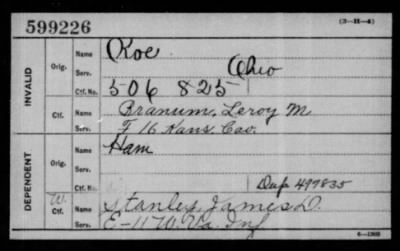 599226
(3-H-4)
INVALID
Orig.
Name Roe
Serv. Ohio
Ctf. No. 506 825
Ctf.
Name Branum, Leroy M
Serv. F 16 Kans. Cav.
DEPENDENT
Orig.
Name Ham
Serv.
Ctf. No. Dup 499835
W.
Ctf.
Name Stanley James D.
Serv. E-11 W. Va. Inf
6-1908